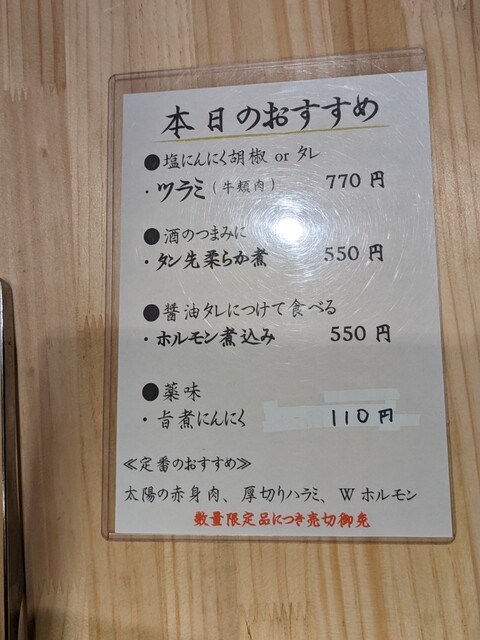 本日のおすすめ
●塩にんにく胡椒 or タレ
・ツラミ(牛頬肉) 770円
●酒のつまみに
・タン先柔らか煮 550円
●醤油タレにつけて食べる
・ホルモン煮込み 550円
●薬味
・旨煮にんにく 110円
≪定番のおすすめ≫
太陽の赤身肉、厚切りハラミ、Wホルモン
数量限定品につき売切御免